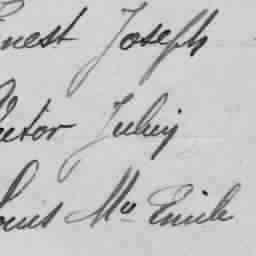 Ernest Joseph
Victor Julien
Louis Mie Emile